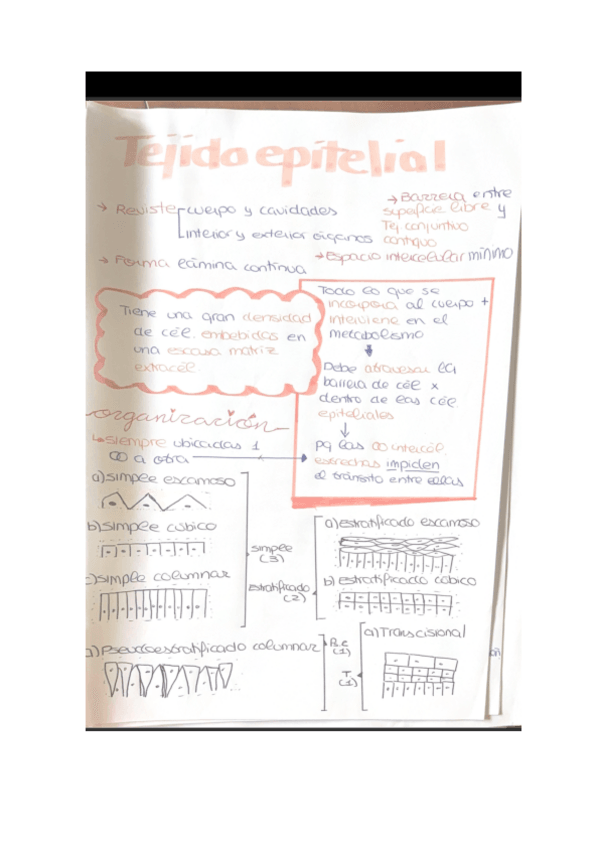 Tejido epitelial
→ Reviste cuerpo y cavidades
interior y exterior órganos
→ Forma lámina continua
→ Barrera entre
superficie libre y
Tej. conjuntivo
contiguo
→ Espacio intercelular mínimo
Tiene una gran densidad
de cél. embebidas en
una escasa matriz
extracél.
Todo lo que se
incorpora al cuerpo +
interviene en el
metabolismo
Debe atravesar la
barrera de cél x
dentro de las cél.
epiteliales
↓
pq las ∞ intercél.
estrechas impiden
el tránsito entre ellas
organización
↳ siempre ubicadas 1
∞ a otra
a) simple escamoso
b) simple cúbico
c) simple columnar
simple
(3)
estratificado
(2)
a) estratificado escamoso
b) estratificado cúbico
a) Pseudoestratificado columnar
P.e.c
(1)
T
(1)
a) Transcisional